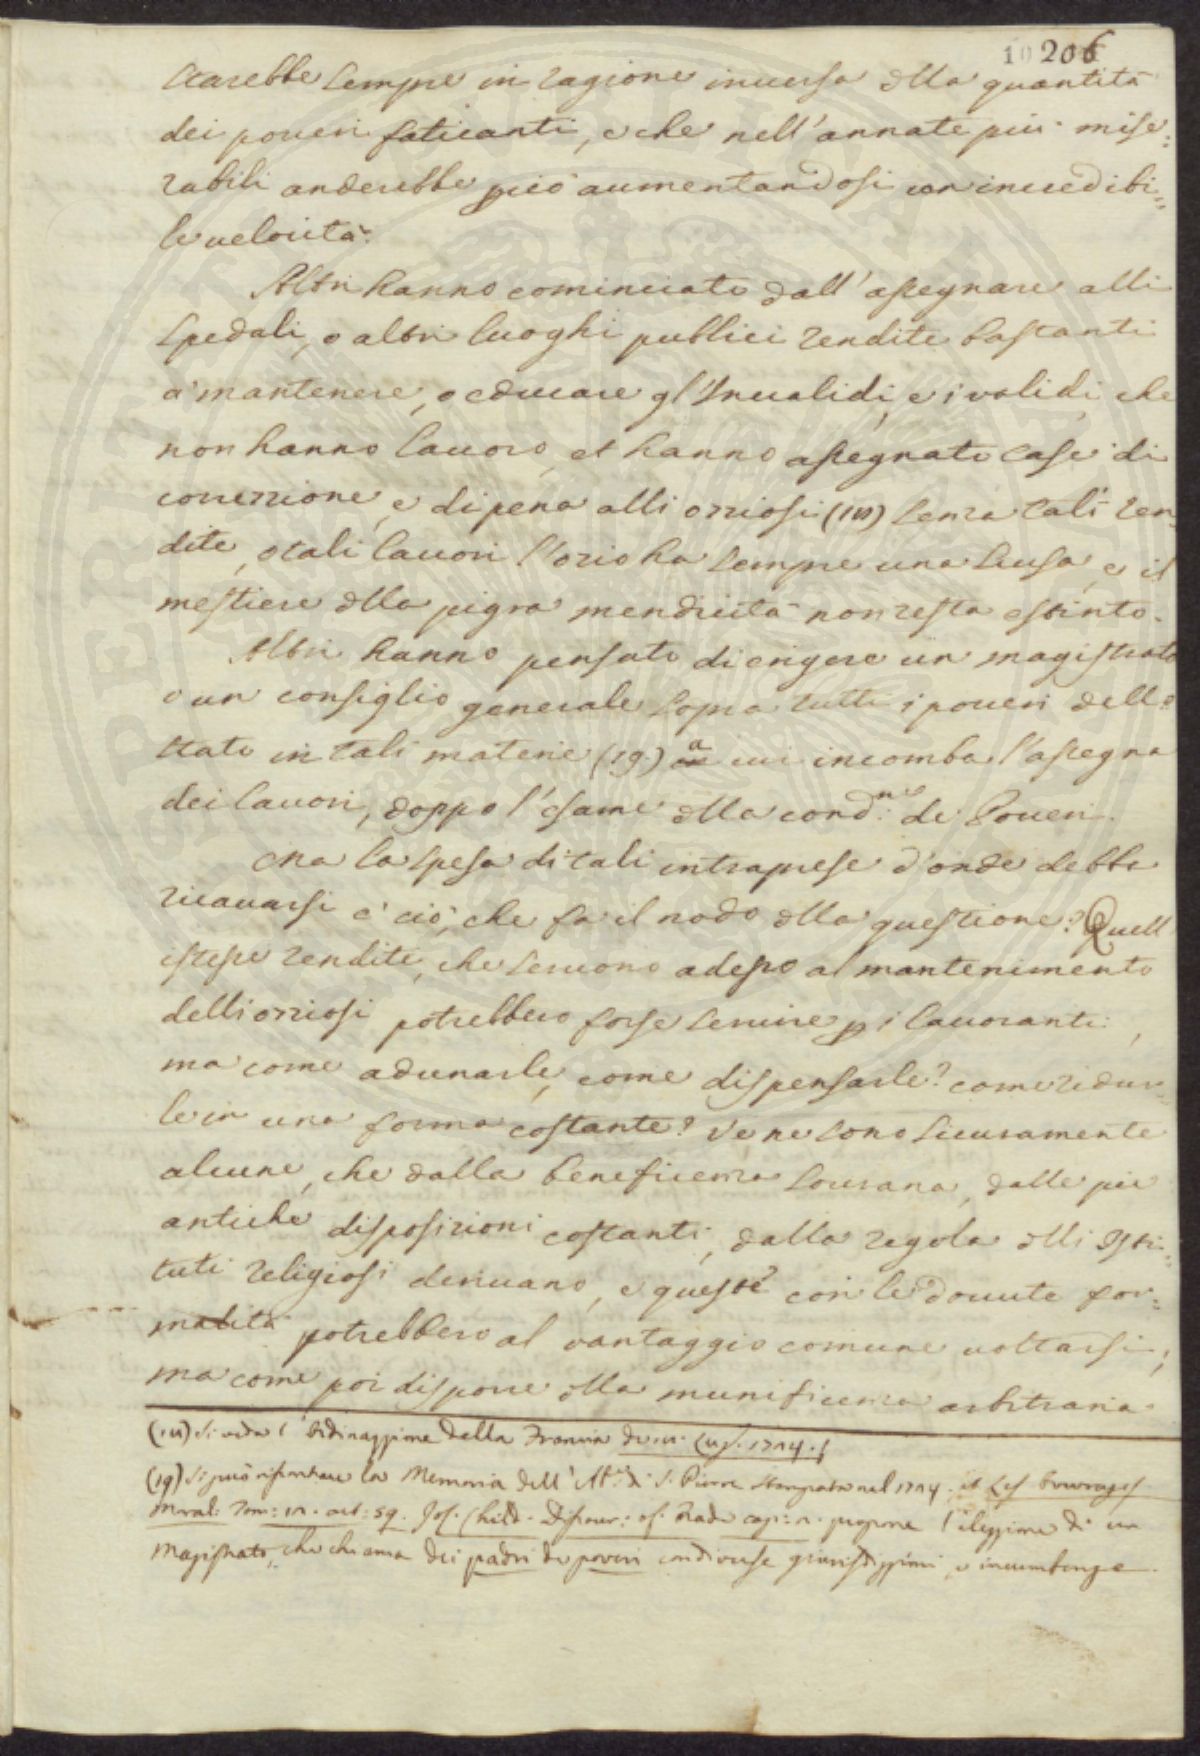 10 206
starebbe sempre in ragione inversa della quantità
dei poveri faticanti, e che nell'annate più mise:
rabili anderebbe più aumentandosi con incredibi=
le velocità.
Altri hanno cominciato dall'assegnare alli
spedali, o altri luoghi publici rendite bastanti
a mantenere, o educare gl'Invalidi, e i validi, che
non hanno lavoro, et hanno assegnato case di
correzzione, e di pena alli ozziosi (18) senza tali ren
dite, o tali lavori l'ozio ha sempre una scusa, e il
mestiere della pigra mendicità non resta estinto.
Altri hanno pensato di erigere un magistrato
o un consiglio generale sopra tutti i poveri dell:
stato in tali materie (19.) a cui incomba l'assegna
dei lavori, doppo l'esame della cond:ne de Poveri.
Ma la spesa di tali intraprese d'onde debba
ricavarsi è ciò, che fa il nodo della questione? Quell
istesse rendite, che servono adesso al mantenimento
delli ozziosi potrebbero forse servire p i lavoranti:
ma come adunarle, come dispensarle? come ridur
le in una forma costante? Ve ne sono sicuramente
alcune, che dalla beneficenza sovrana, dalle più
antiche disposizioni costanti, dalla regola delli Isti=
tuti religiosi derivano, e queste con le dovute for=
malità potrebbero al vantaggio comune voltarsi;
ma come poi disporre della munificenza arbitraria
(18) Si veda l' della Francia 1724.
(19) Si può riscontrare la Memoria dell'Ab: di S. Pierre stampata nel 1724. et Les
moral: Tom: art: 59. Jos. Child. Discour: of Trade cap: 2. propone l'elezzione di un
Magistrato, che chiama dei padri de poveri con diverse giurisdizzioni, e incumbenze.